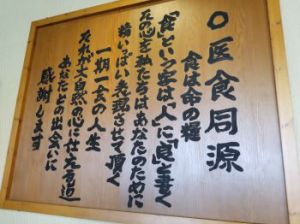 〇医食同源
食は命の糧
「食」という字は、「人」に「良」と書く
その心を私たちはあなたのために
精いっぱい表現させて頂く
一期一会の人生
それが大自然の心に仕える道
あなたとの出会いに
感謝します